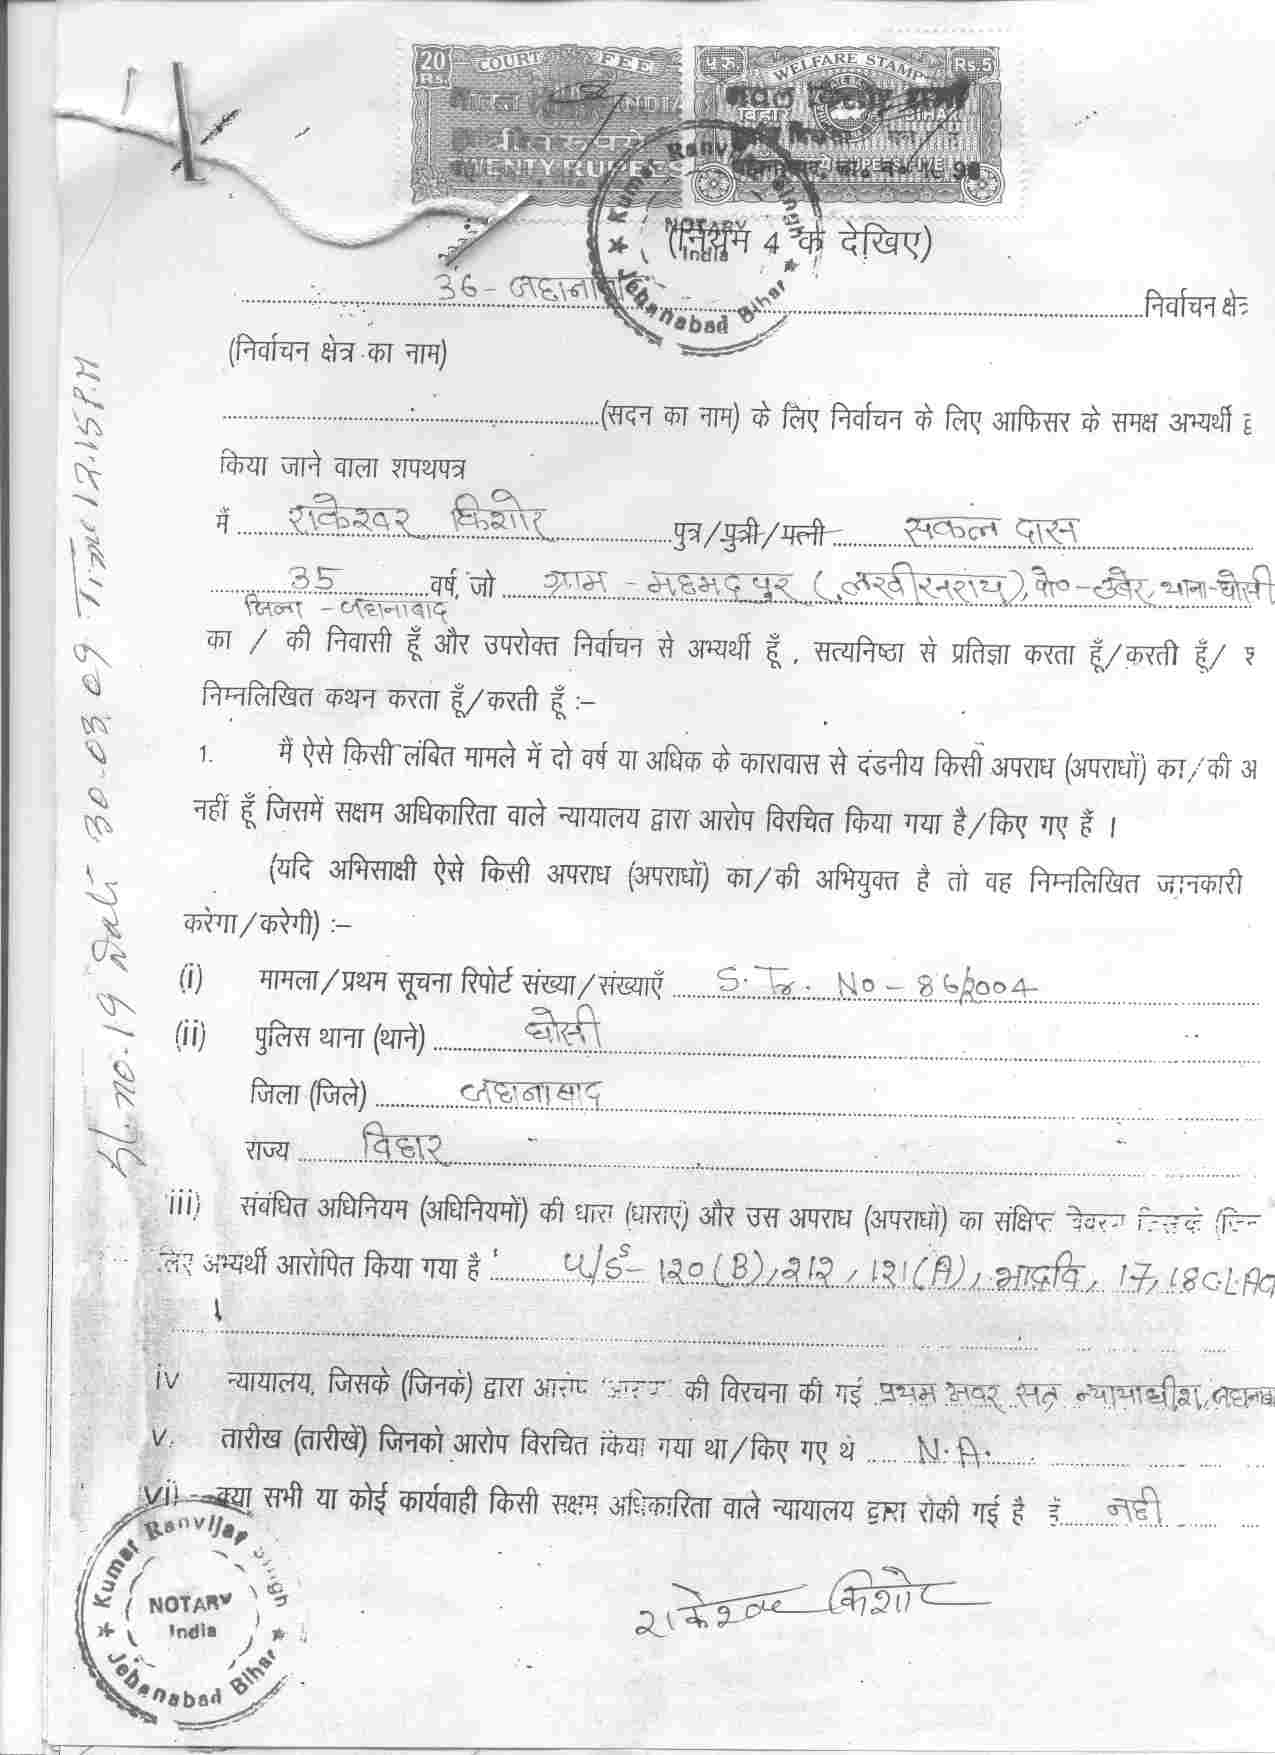 20 Rs. COURT FEE
भारत INDIA
बीस रुपये
TWENTY RUPEES
५ रु. WELFARE STAMP Rs.5
बिहार BIHAR
Kumar Ranvijay Singh
NOTARY
India
Jehanabad Bihar
(नियम 4 क देखिए)
36 - जहानाबाद निर्वाचन क्षेत्र
(निर्वाचन क्षेत्र का नाम)
(सदन का नाम) के लिए निर्वाचन के लिए आफिसर के समक्ष अभ्यर्थी
किया जाने वाला शपथपत्र
मैं राकेश्वर किशोर पुत्र/पुत्री/पत्नी सकल दास
35 वर्ष, जो ग्राम - महमदपुर (लखीनराय), पो० - उबेर, थाना - घोसी
जिला - जहानाबाद
का / की निवासी हूँ और उपरोक्त निर्वाचन से अभ्यर्थी हूँ , सत्यनिष्ठा से प्रतिज्ञा करता हूँ/करती हूँ/
निम्नलिखित कथन करता हूँ/करती हूँ :–
1. मैं ऐसे किसी लंबित मामले में दो वर्ष या अधिक के कारावास से दंडनीय किसी अपराध (अपराधों) का/की अ
नहीं हूँ जिसमें सक्षम अधिकारिता वाले न्यायालय द्वारा आरोप विरचित किया गया है/किए गए हैं ।
(यदि अभिसाक्षी ऐसे किसी अपराध (अपराधों) का/की अभियुक्त है तो वह निम्नलिखित जानकारी
करेगा/करेगी) :–
(i) मामला/प्रथम सूचना रिपोर्ट संख्या/संख्याएँ S. Tr. No - 86/2004
(ii) पुलिस थाना (थाने) घोसी
जिला (जिले) जहानाबाद
राज्य बिहार
iii) संबंधित अधिनियम (अधिनियमों) की धारा (धाराएं) और उस अपराध (अपराधों) का संक्षिप्त
लिए अभ्यर्थी आरोपित किया गया है U/S - 120(B), 212, 121(A), भादवि, 17, 18 C.L.A
iv न्यायालय, जिसके (जिनके) द्वारा आरोप की विरचना की गई प्रथम अवर सत्र न्यायाधीश, जहानाबा
v. तारीख (तारीखें) जिनको आरोप विरचित किया गया था/किए गए थे N.A.
vi) क्या सभी या कोई कार्यवाही किसी सक्षम अधिकारिता वाले न्यायालय द्वारा रोकी गई है नहीं
राकेश्वर किशोर
Kumar Ranvijay Singh
NOTARY
India
Jehanabad Bihar
Sl. no. 19 Date 30.03.09 Time 12.15 P.M